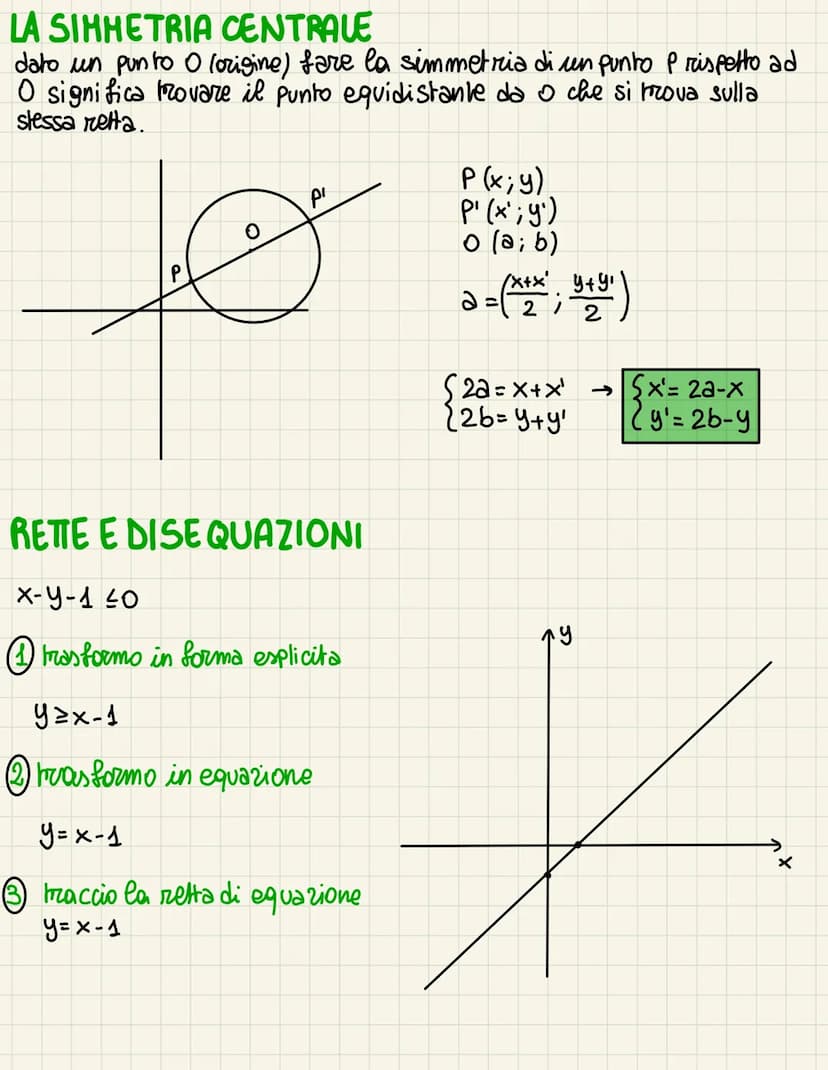 LA SIMMETRIA CENTRALE
dato un punto O (origine) fare la simmetria di un punto P rispetto ad
O significa trovare il punto equidistante da O che si trova sulla
stessa retta.
P'
O
P
P (x; y)
P' (x'; y')
O (a; b)
a = (x+x'/2 ; y+y'/2)
{2a = x+x' → {x' = 2a-x
{2b = y+y' {y' = 2b-y
RETTE E DISEQUAZIONI
x-y-1 ≤0
① trasformo in forma esplicita
y≥x-1
② trasformo in equazione
y= x-1
③ traccio la retta di equazione
y= x-1
y
x